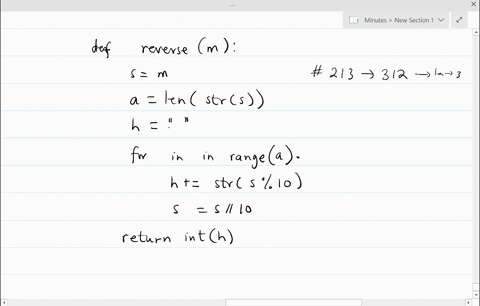 Minutes > New Section 1
def reverse (m):
s = m
# 213 → 312 → ln → 3
a = len( str(s))
h = " "
for in in range(a).
h += str( s % 10)
s = s // 10
return int(h)